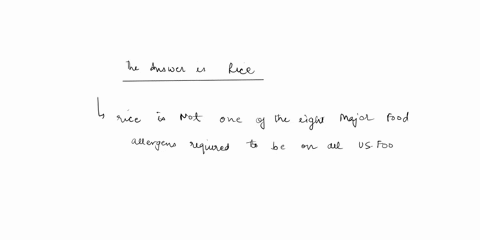 The answer is Rice
rice is Not one of the eight Major Food
allergens required to be on all US. Foo